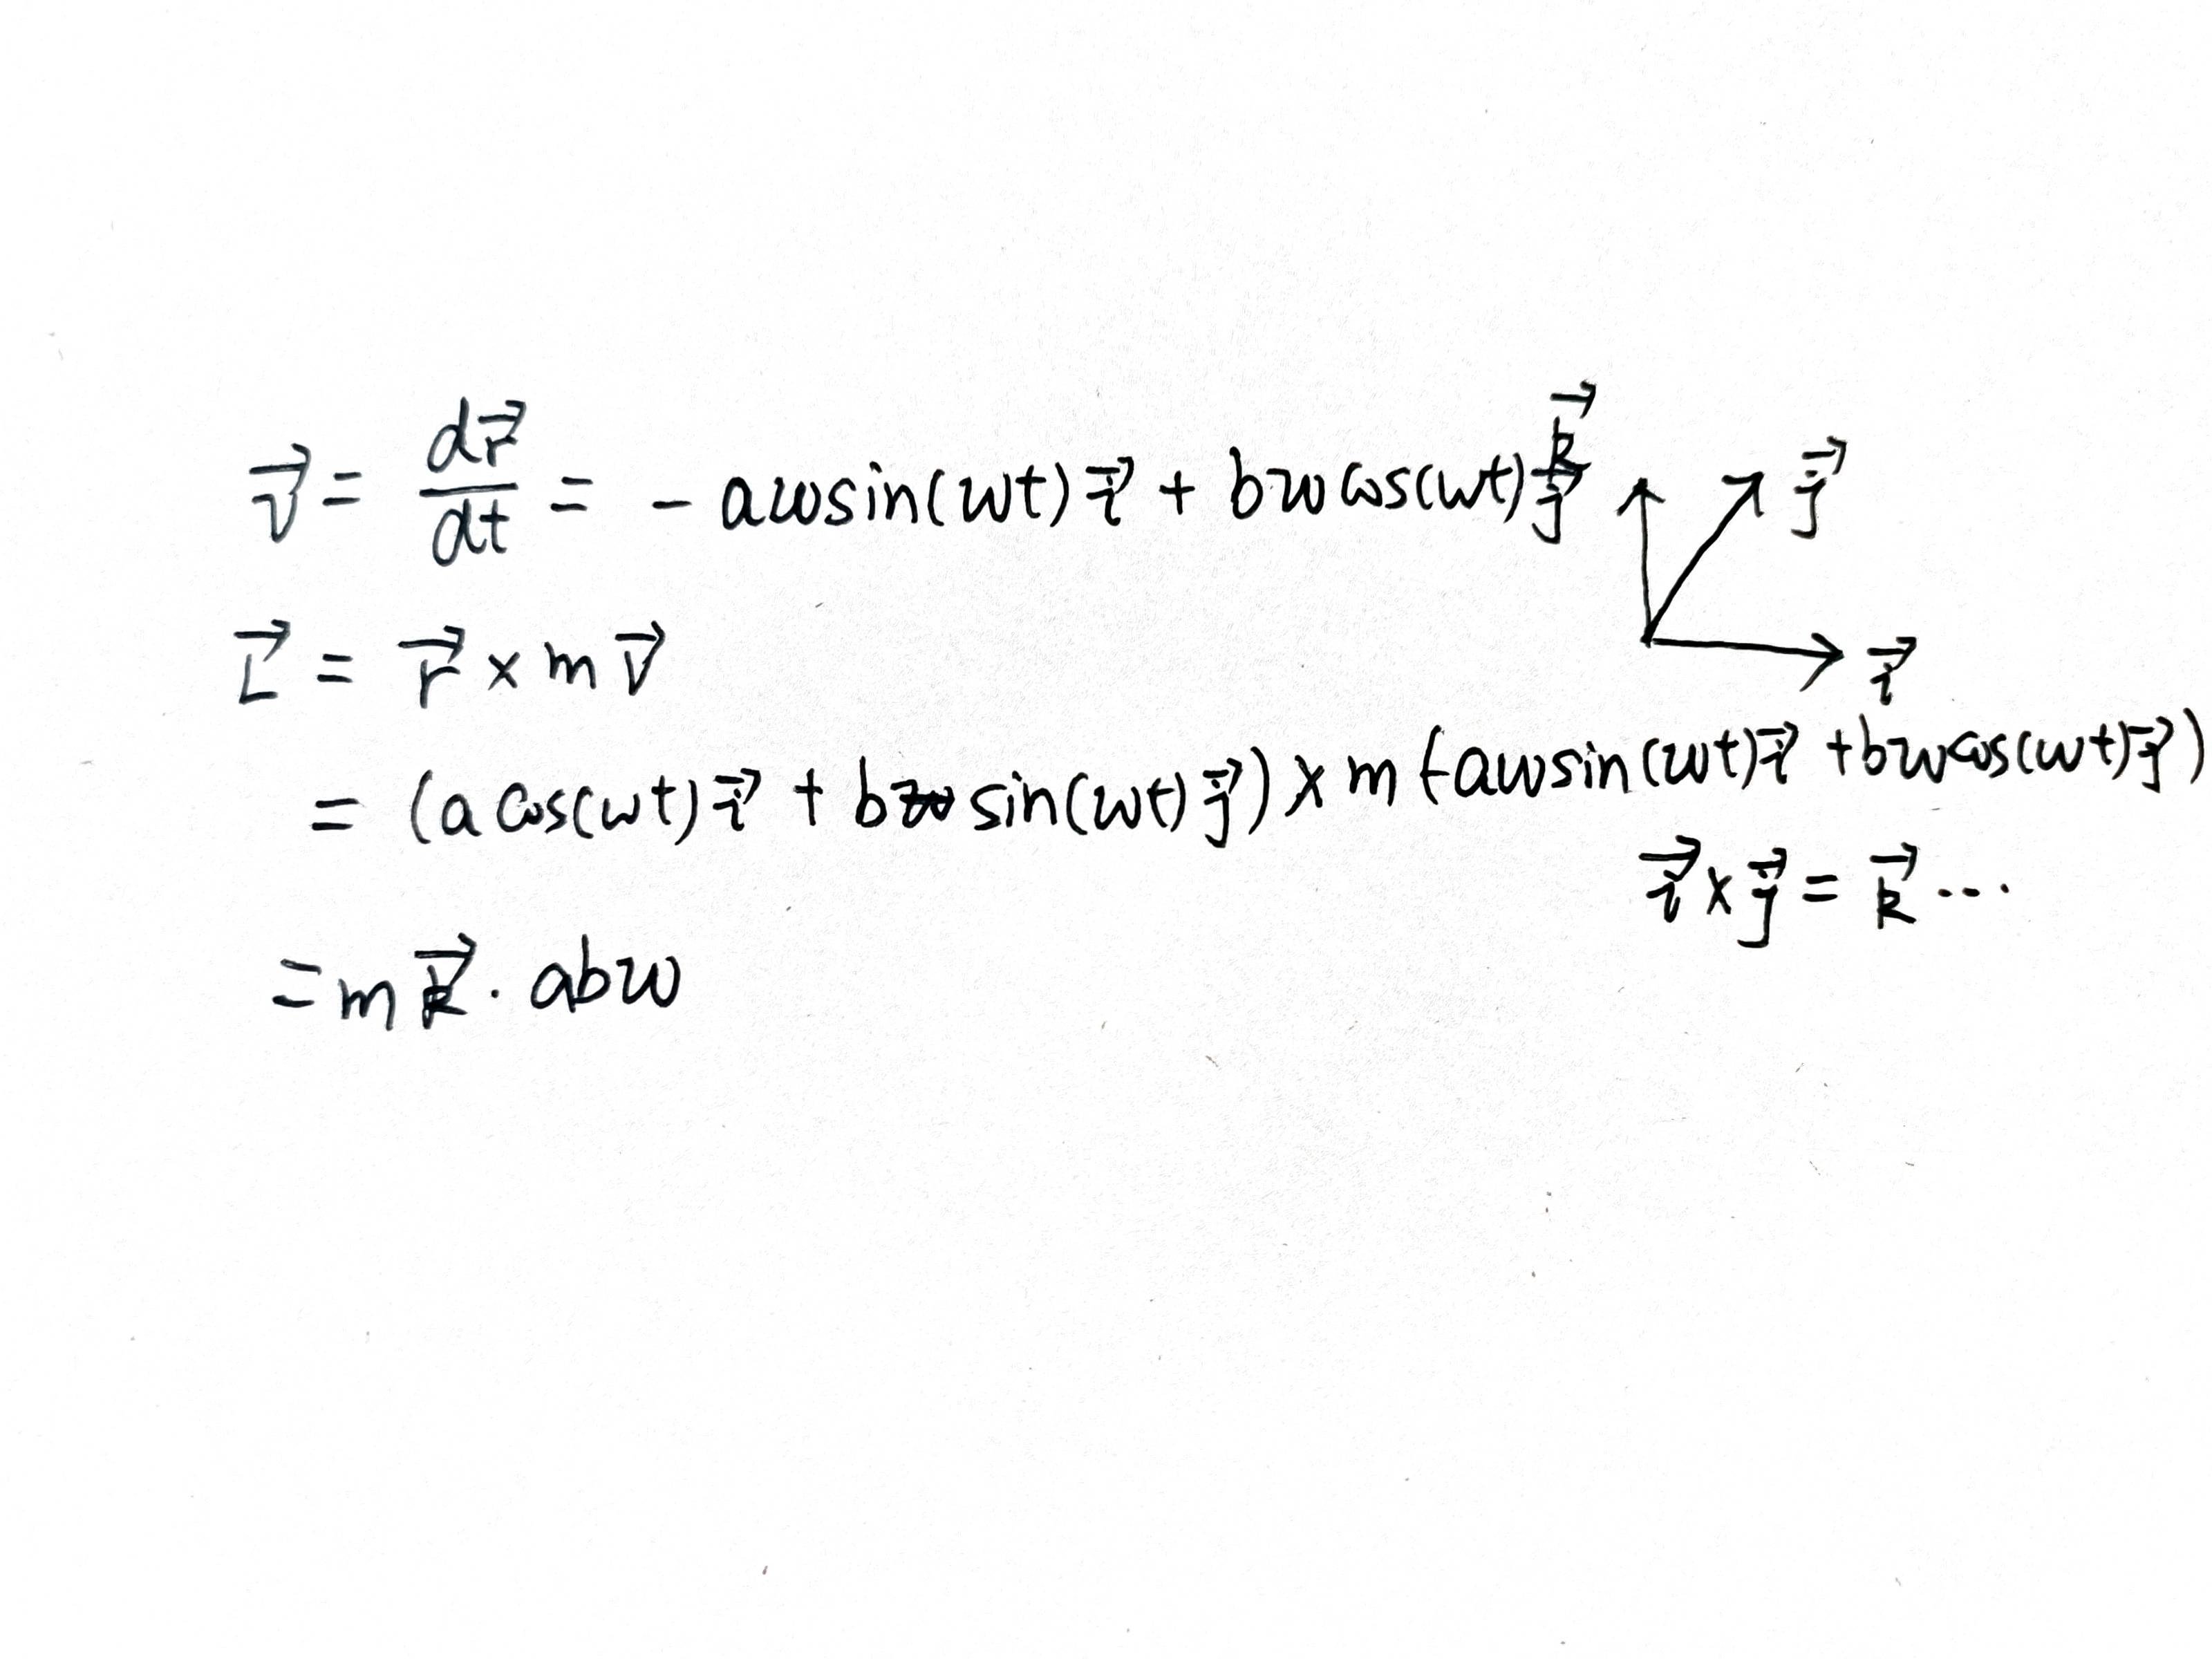 v⃗ = dr⃗/dt = - aωsin(ωt) i⃗ + bωcos(ωt) j⃗
k⃗
j⃗
i⃗
L⃗ = r⃗ × m v⃗
= (a cos(ωt) i⃗ + b sin(ωt) j⃗) × m (-aωsin(ωt) i⃗ + bωcos(ωt) j⃗)
i⃗ × j⃗ = k⃗ ...
= m k⃗ · abω